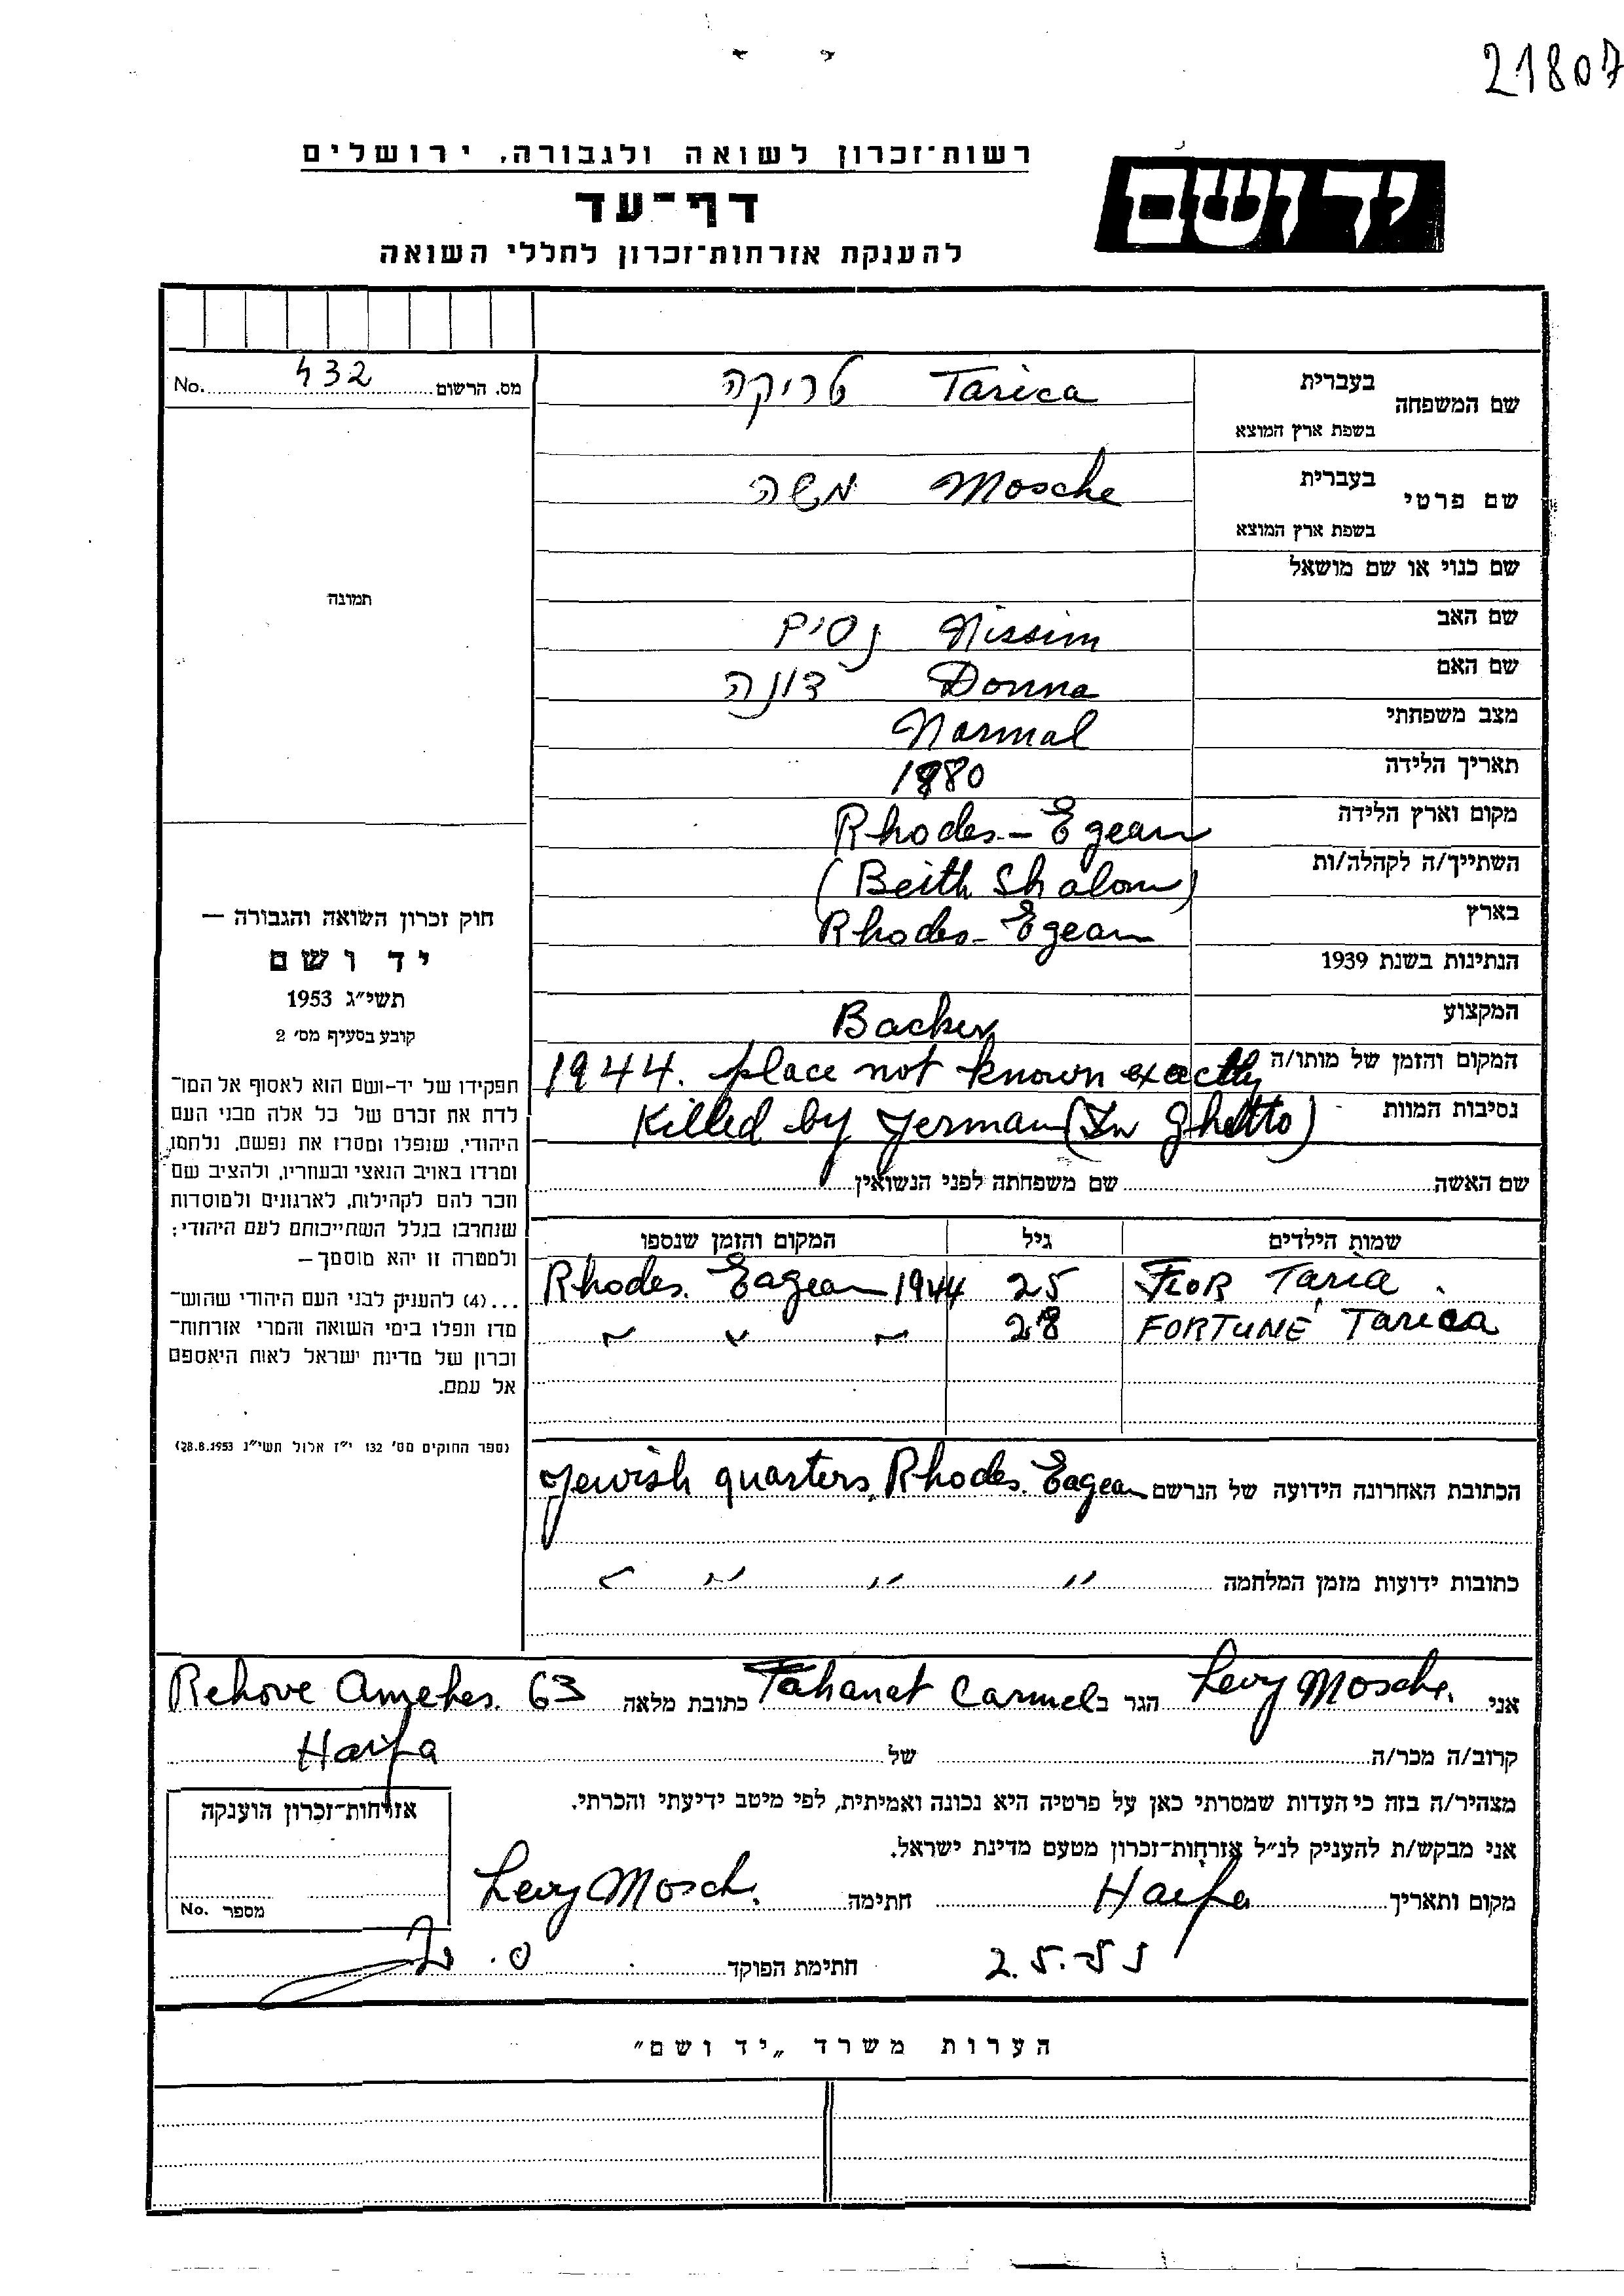 21807
רשות־זכרון לשואה ולגבורה, ירושלים
יד ושם
דף־עד
להענקת אזרחות־זכרון לחללי השואה
מס. הרשום 432 No.
שם המשפחה
בעברית
טריקה Tarica
בשפת ארץ המוצא
שם פרטי
בעברית
משה Mosche
בשפת ארץ המוצא
שם כנוי או שם מושאל
תמונה
שם האב נסים Nissim
שם האם דונה Donna
מצב משפחתי Normal
תאריך הלידה 1880
מקום וארץ הלידה Rhodes - Egean
השתייך/ה לקהלה/ות (Beith Shalom)
בארץ Rhodes - Egean
הנתינות בשנת 1939
המקצוע Backer
המקום והזמן של מותו/ה 1944. place not known exactly
נסיבות המוות Killed by german (In Ghetto)
שם האשה שם משפחתה לפני הנשואין
שמות הילדים גיל המקום והזמן שנספו
FLOR Taria 25 Rhodes. Eagean 1944
FORTUNE Tarica 28 " " "
חוק זכרון השואה והגבורה —
יד ושם
תשי״ג 1953
קובע בסעיף מס׳ 2
תפקידו של יד-ושם הוא לאסוף אל המו־
לדת את זכרם של כל אלה מבני העם
היהודי, שנפלו ומסרו את נפשם, נלחמו
ומרדו באויב הנאצי ובעוזריו, ולהציב שם
וזכר להם לקהילות, לארגונים ולמוסדות
שנחרבו בגלל השתייכותם לעם היהודי;
ולמטרה זו יהא מוסמך—
...(4) להעניק לבני העם היהודי שהוש־
מדו ונפלו בימי השואה והמרי אזרחות־
זכרון של מדינת ישראל לאות היאספם
אל עמם.
(ספר החוקים מס׳ 132 י״ז אלול תשי״ג 28.8.1953)
הכתובת האחרונה הידועה של הנרשם Jewish quarters, Rhodes. Eagean
כתובות ידועות מזמן המלחמה " " " "
אני Levy Mosche. הגר ב Tahanat Carmel כתובת מלאה 63
Haifa
קרוב/ה מכר/ה של
מצהיר/ה בזה כי העדות שמסרתי כאן על פרטיה היא נכונה ואמיתית, לפי מיטב ידיעתי והכרתי.
אני מבקש/ת להעניק לנ״ל אזרחות־זכרון מטעם מדינת ישראל.
מקום ותאריך Haifa חתימה Levy Mosch.
חתימת הפוקד
אזרחות־זכרון הוענקה
מספר No.
הערות משרד „יד ושם״